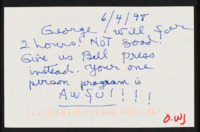 6/4/98
George Will for
2 hours! Not good.
Give us Bill Press
instead. Your one
person program is
Awful!!!!